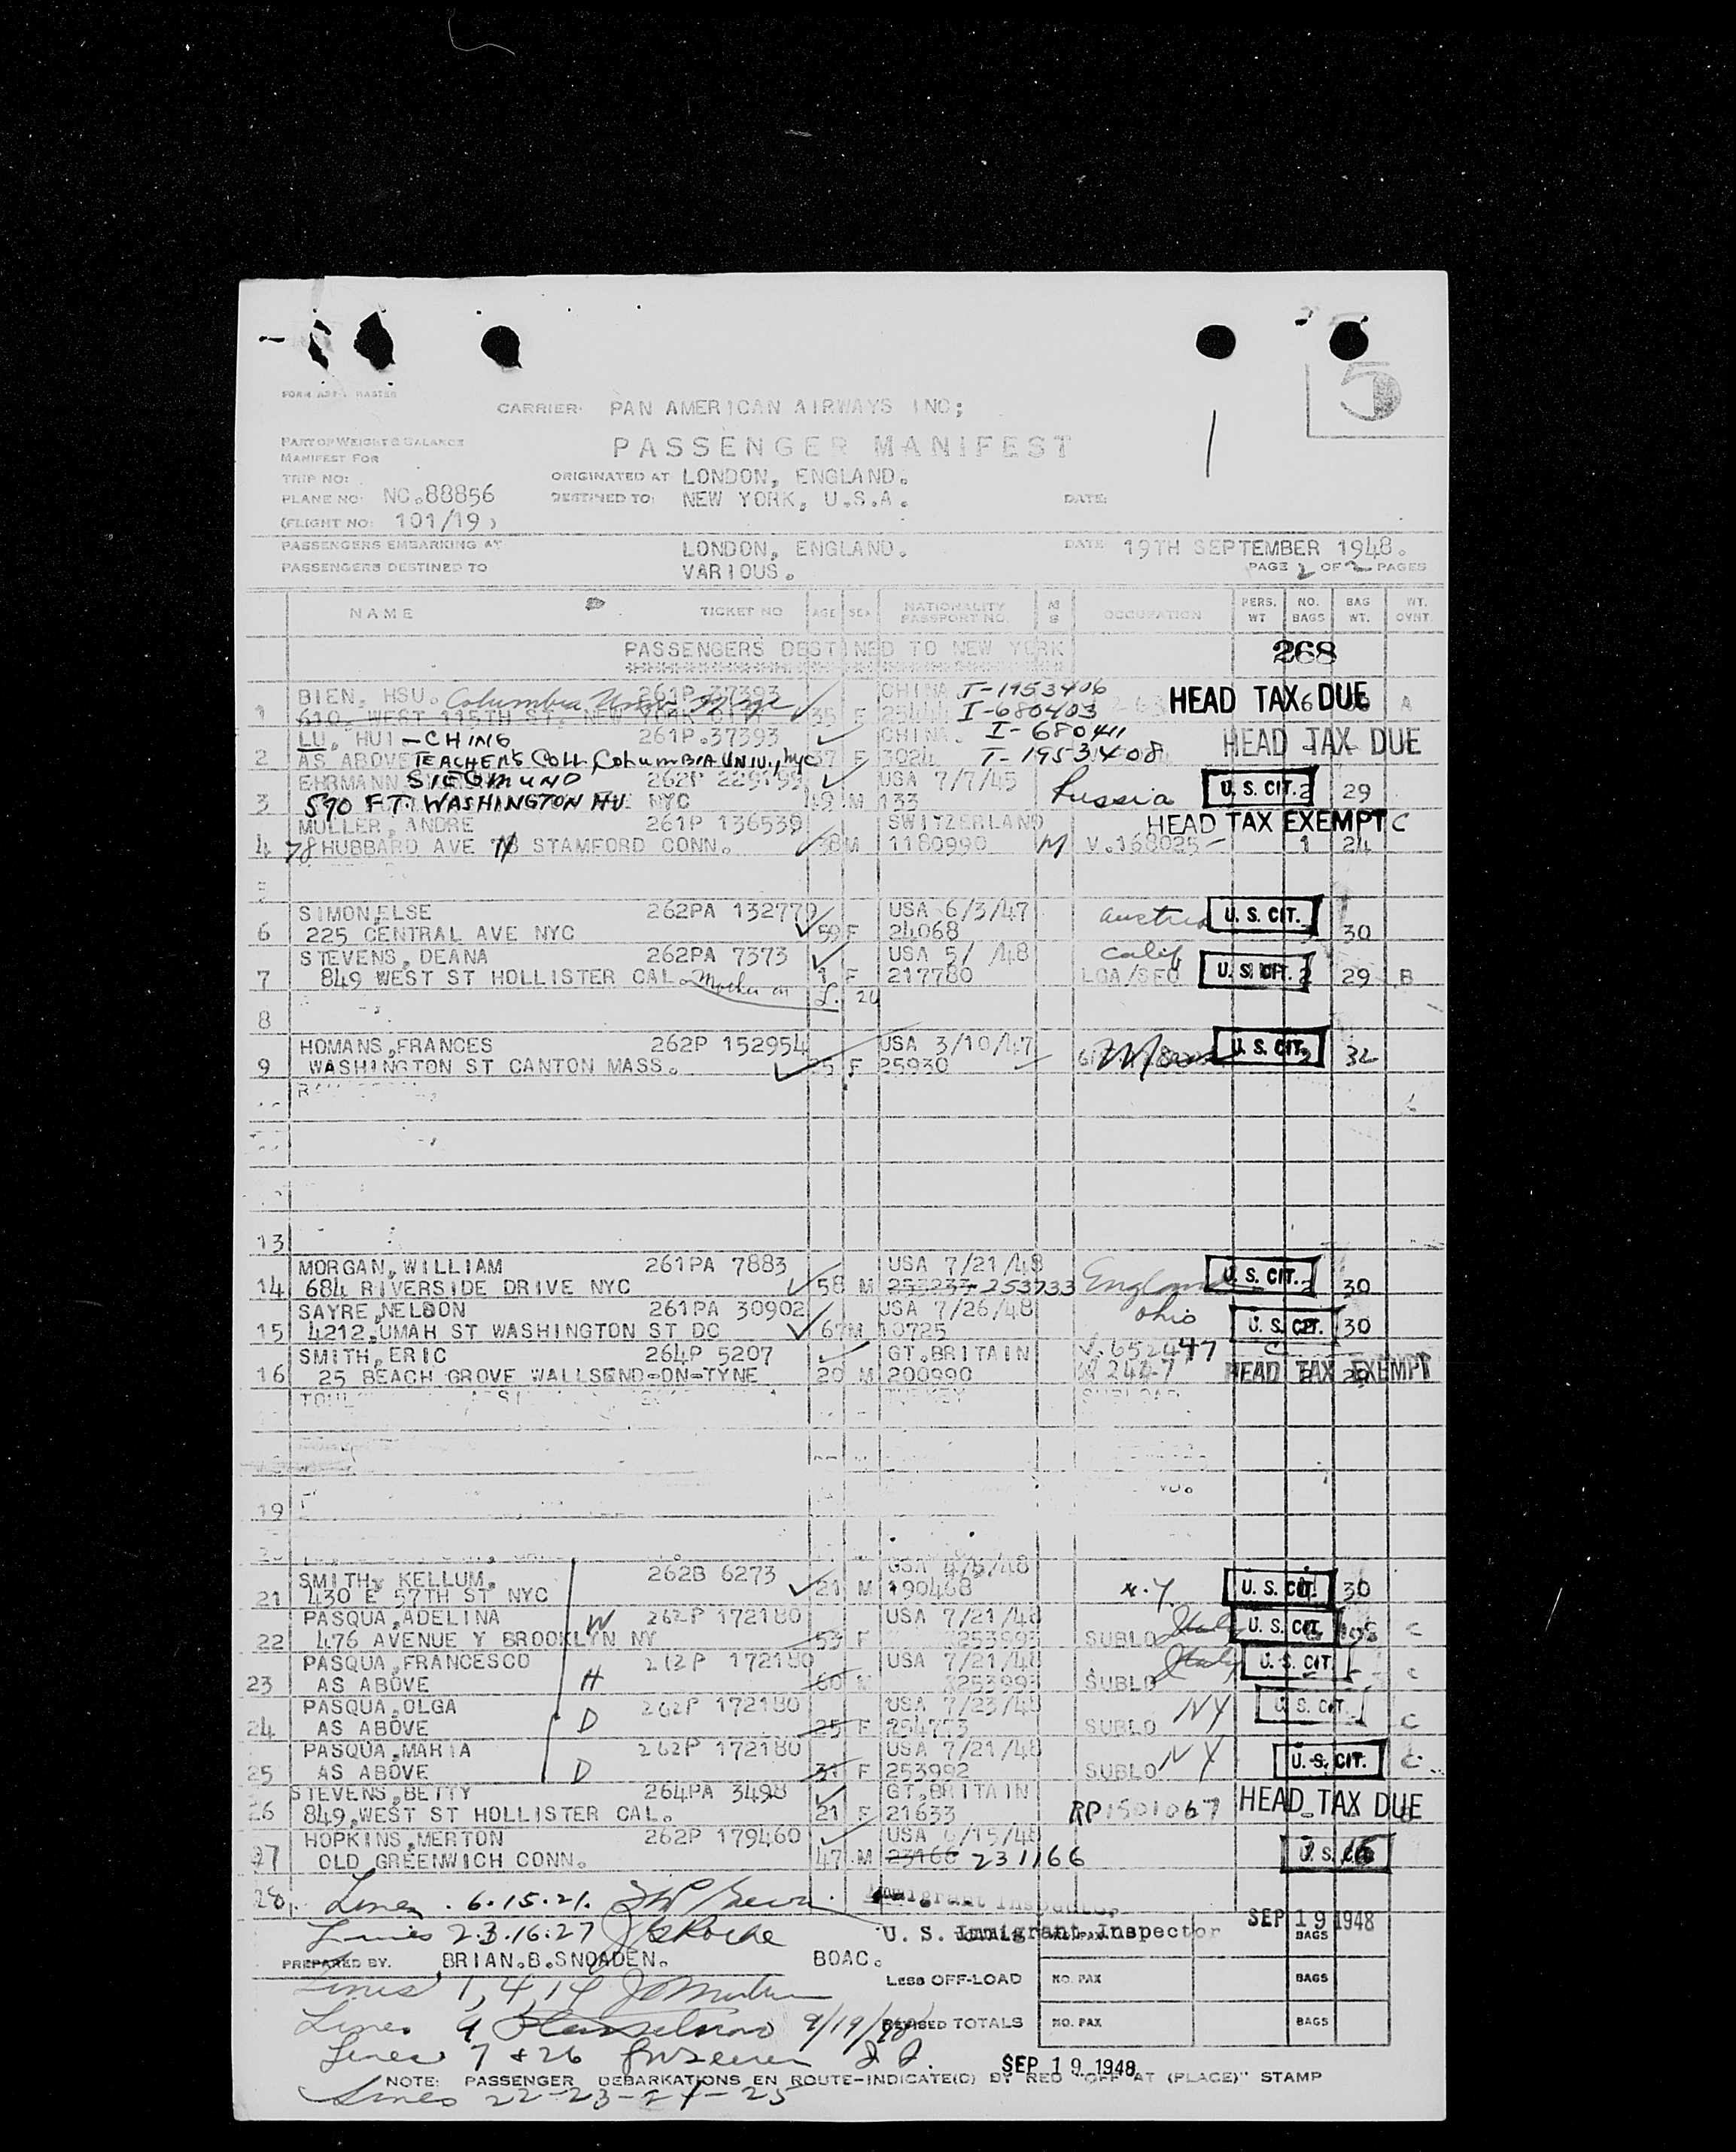 5
CARRIER: PAN AMERICAN AIRWAYS INC;
PART OF WEIGHT & BALANCE
MANIFEST FOR
PASSENGER MANIFEST
TRIP NO:
ORIGINATED AT LONDON, ENGLAND.
PLANE NO: NC.88856
DESTINED TO: NEW YORK, U.S.A.
DATE:
(FLIGHT NO: 101/19)
PASSENGERS EMBARKING AT LONDON, ENGLAND. DATE 19TH SEPTEMBER 1948.
PASSENGERS DESTINED TO VARIOUS. PAGE 2 OF 2 PAGES
NAME TICKET NO AGE SEX NATIONALITY PASSPORT NO. OCCUPATION PERS. WT NO. BAGS BAG WT. WT. OVNT.
PASSENGERS DESTINED TO NEW YORK 268
BIEN, HSU. Columbia 261P 37393 CHINA I-1953406
1 610 WEST 115TH ST. NEW YORK CITY 35 F I-680403 HEAD TAX DUE A
LU, HUI -CHING 261P.37393 CHINA. I-680411
2 AS ABOVE TEACHERS COLL. COLUMBIA UNIV., NYC 37 F 3024 I-1953408 HEAD TAX DUE
EHRMANN SIEGMUND 262P USA 7/7/45
3 590 FT. WASHINGTON AV. NYC 49 M 133 Russia U. S. CIT. 2 29
MULLER, ANDRE 261P 136539 SWITZERLAND HEAD TAX EXEMPT C
4 78 HUBBARD AVE STAMFORD CONN. 38 M 1180990 M V.168025 1 24
SIMON,ELSE 262PA 132770 USA 6/3/47
6 225 CENTRAL AVE NYC 59 F 24068 Austria U. S. CIT. 30
STEVENS, DEANA 262PA 7373 USA 5/ /48 Calif
7 849 WEST ST HOLLISTER CAL. Mother on L. 26 1 F 217780 LGA/SFO U. S. CIT. 2 29 B
8
HOMANS,FRANCES 262P 152954 USA 3/10/47
9 WASHINGTON ST CANTON MASS. 25 F 25930 Mass U. S. CIT. 2 32
13
MORGAN,WILLIAM 261PA 7883 USA 7/21/48
14 684 RIVERSIDE DRIVE NYC 58 M 253233 253733 England U. S. CIT. 2 30
SAYRE,NELSON 261PA 30902 USA 7/26/48 Ohio
15 4212,UMAH ST WASHINGTON ST DC 67 M 10725 U. S. CIT. 30
SMITH,ERIC 264P 5207 GT.BRITAIN V.652447 C
16 25 BEACH GROVE WALLSEND-ON-TYNE 20 M 200990 HEAD TAX EXEMPT
TURKEY
19
SMITH, KELLUM. 262B 6273 USA
21 430 E 57TH ST NYC 21 M 190468 N.Y. U. S. CIT. 30
PASQUA,ADELINA W 262P 172180 USA 7/21/48
22 476 AVENUE Y BROOKLYN NY 53 F 253993 SUBLO Italy U. S. CIT. C
PASQUA,FRANCESCO 262P 172180 USA 7/21/48
23 AS ABOVE H 60 M 253993 SUBLO Italy U. S. CIT. C
PASQUA,OLGA 262P 172180 USA 7/23/48
24 AS ABOVE D 25 F 254773 SUBLO NY U. S. CIT. C
PASQUA,MARIA 262P 172180 USA 7/21/48
25 AS ABOVE D 31 F 253992 SUBLO NY U. S. CIT. C
STEVENS,BETTY 264PA 3498 GT.BRITAIN
26 849,WEST ST HOLLISTER CAL. 21 F 21633 RP1501067 HEAD TAX DUE
HOPKINS,MERTON 262P 179460 USA 6/15/48
27 OLD GREENWICH CONN. 47 M 23166 231166 U. S. CIT.
28. Lines 6.15.21.
Lines 2.3.16.27 J Roche
Immigrant Inspector
U. S. Immigrant Inspector SEP 19 1948
BAGS
PREPARED BY. BRIAN.B.SNOADEN. BOAC.
Lines 1, 4, 14
LESS OFF-LOAD NO. PAX BAGS
Lines 9 9/19/48
REVISED TOTALS NO. PAX BAGS
Lines 7 & 26
SEP 19 1948
NOTE: PASSENGER DEBARKATIONS EN ROUTE-INDICATE(D) BY RED "OFF AT (PLACE)" STAMP
Lines 22-23-24-25